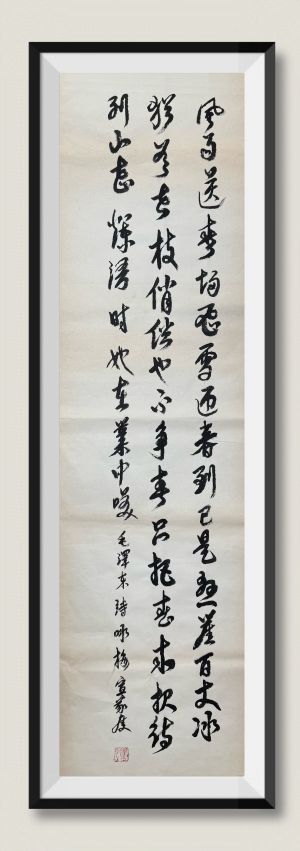 風雨送春歸飛雪迎春到已是懸崖百丈冰
猶有花枝俏俏也不争春只把春来报待
到山花爛漫时她在叢中咲毛澤东詩咏梅